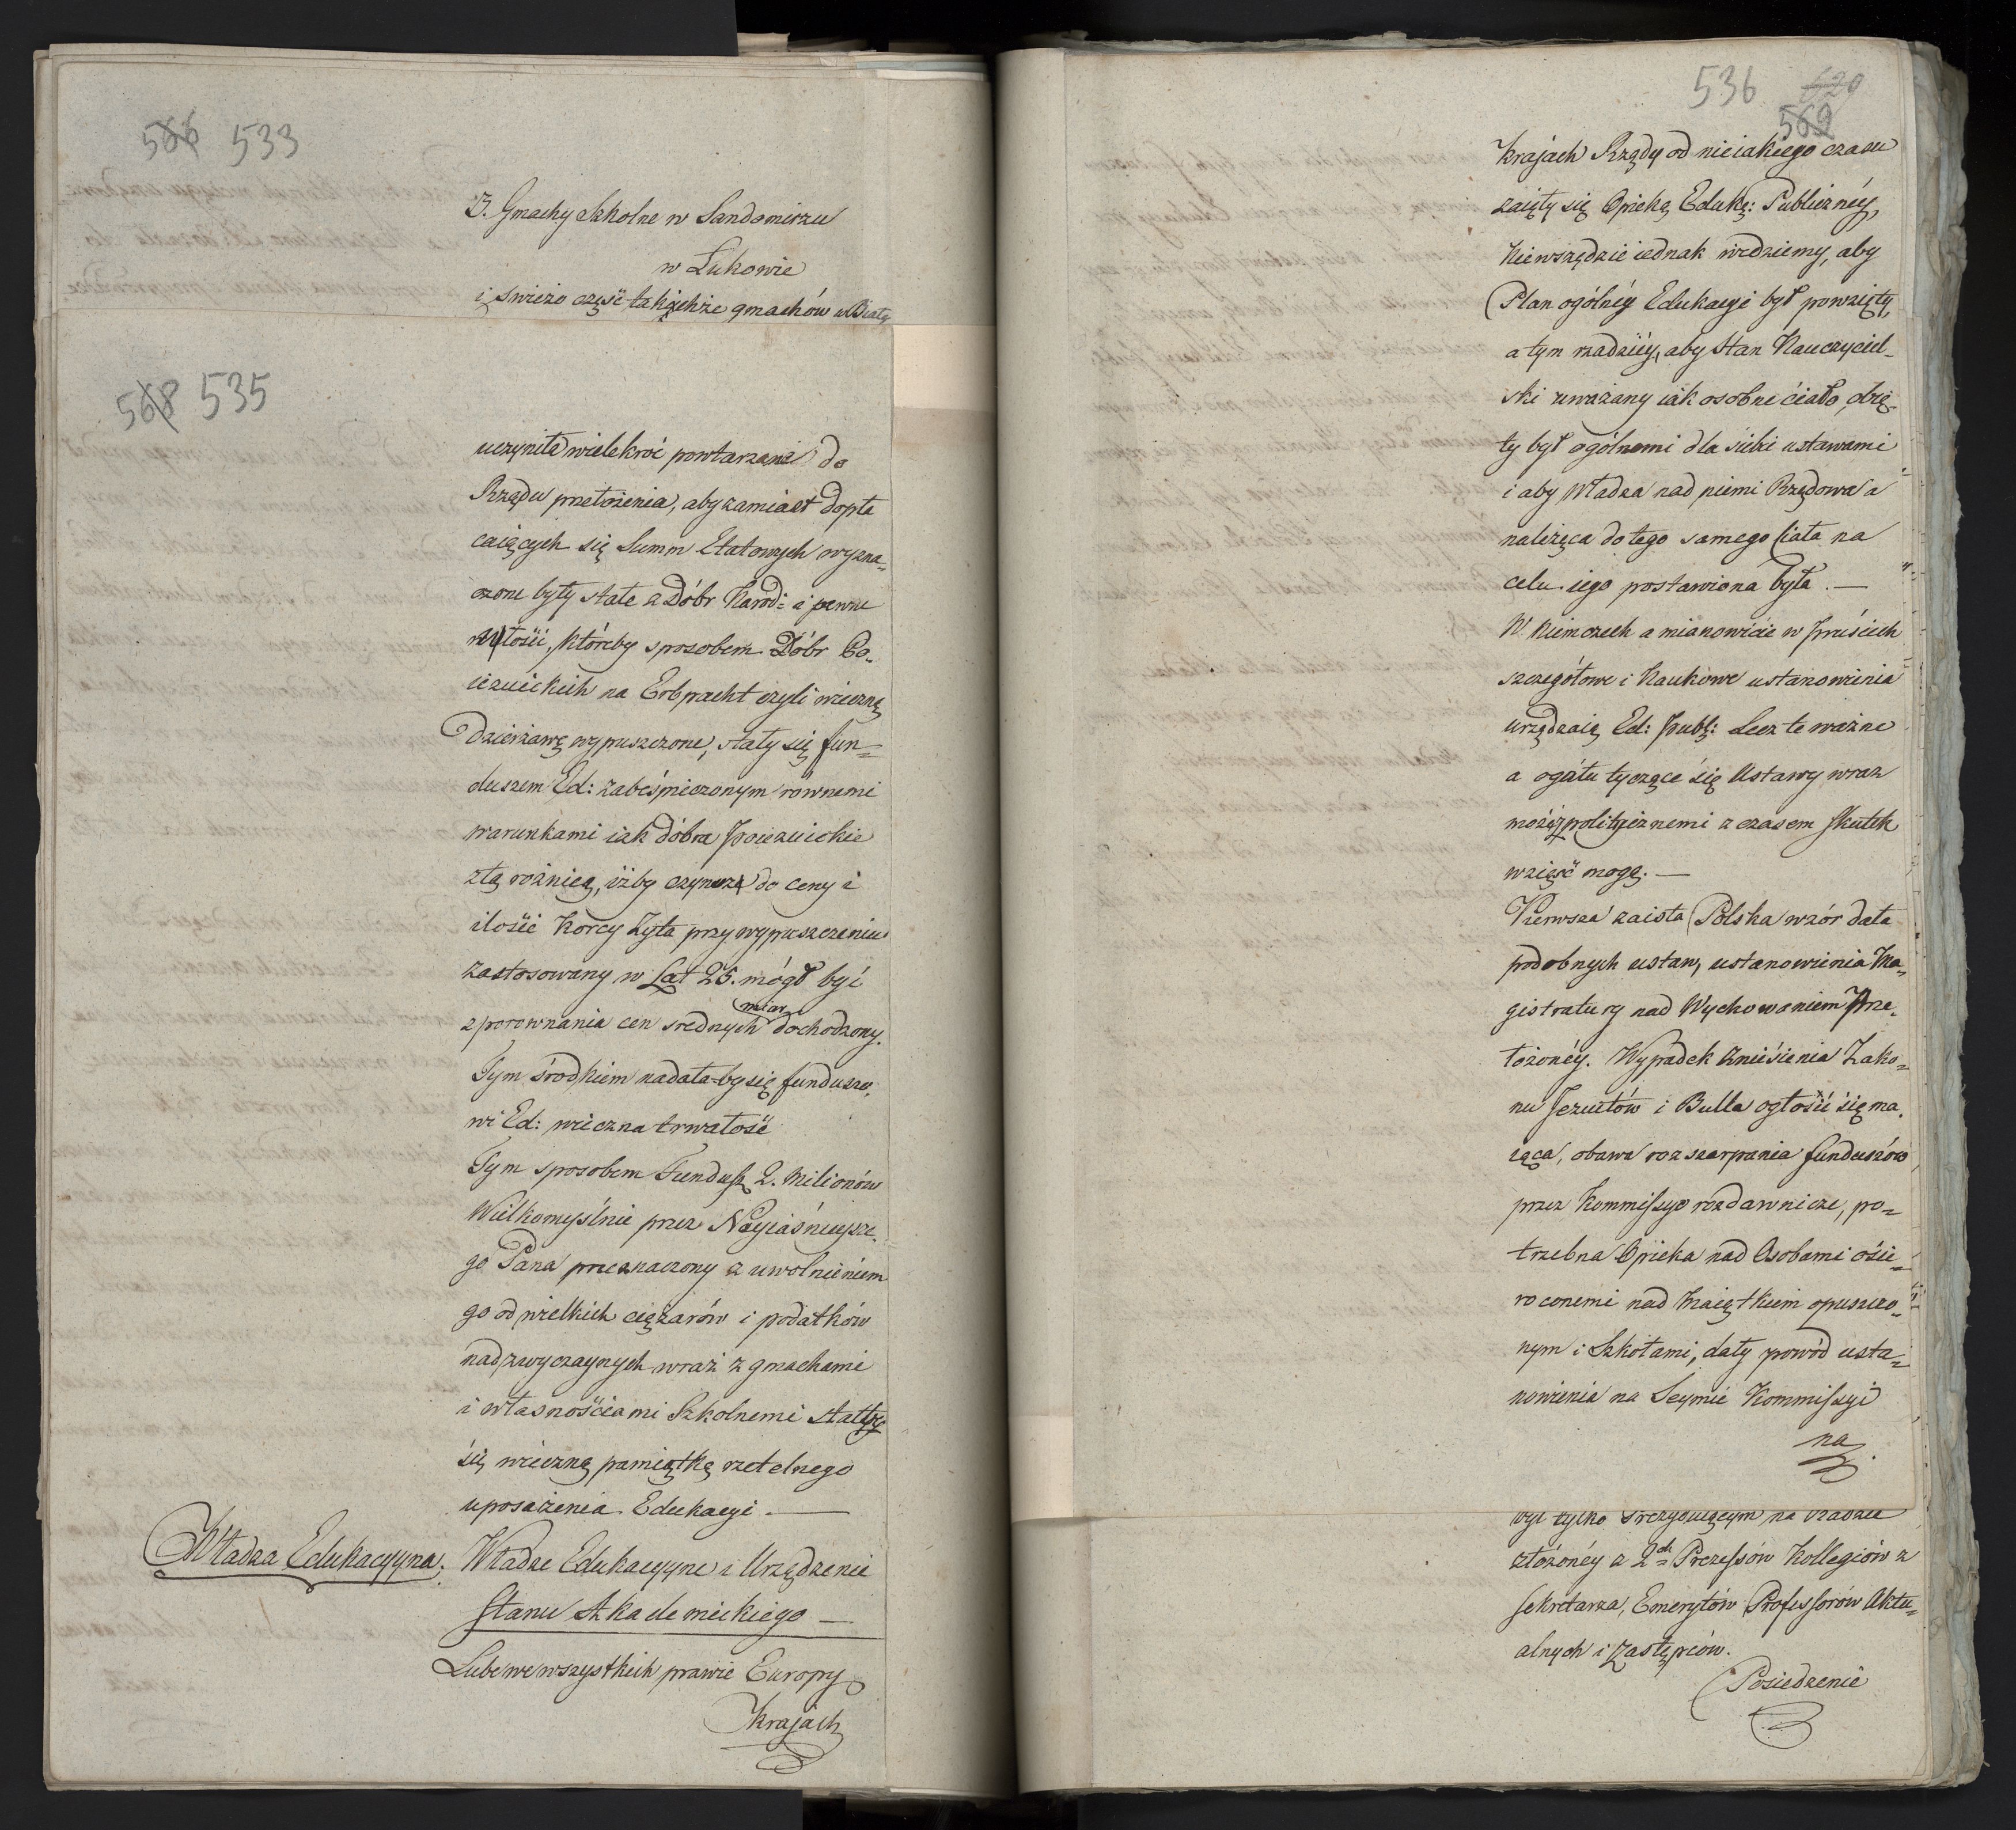 566 533
3. Gmachy Szkolne w Sandomirzu
w Łukowie
i swieżo część takichże gmachów w Biały
568 535
uczyniła wielekroć powtarzane do
Rządu przełożenia, aby zamiast dopła
caiących się Summ Etatowych wyzna=
czone były stałe z Dóbr Narod: i pewne
włości, któreby sposobem Dóbr Po=
iezuickich na Erbpacht czyli wieczną
Dzierżawę wypuszczone, stały się fun=
duszem Ed: zabespieczonym równemi
warunkami iak dobra Poiezuickie
z tą rożnicą, iżby czynsz do ceny i
ilości Korcy Żyta przy wypuszczeniu
zastosowany w Lat 25. mógł być
z porownania cen srednych miar dochodzony.
Tym środkiem nadała-by się fundusza=
wi Ed: wieczna trwałość
Tym sposobem Fundusz 2. Milionów
Wielkomyślnie przez Nayiaśnieysze=
go Pana przeznaczony z uwolnieniem
go od wielkich ciężarów i podatków
nadzwyczaynych wraz z gmachami
i własnościami Szkolnemi stałby
się wieczną pamiątką rzetelnego
uposażenia Edukacyi. —
Władza Edukacyyna. Władze Edukacyyne i Urządzenie
Stanu Akademickiego —
Lubo we wszystkich prawie Europy
krajach
536 629
569
krajach Rządy od nieiakiego czasu
zaięły się Opieką Eduka: Publiczney,
Niewszędzie iednak widziemy, aby
Plan ogólney Edukacyi był powzięty,
a tym rzadziey, aby stan Nauczyciel=
ski uważany iak osobne ciało, obię=
ty był ogólnemi dla siebie ustawami
i aby Władza nad niemi Rządowa a
należąca do tego samego Ciała na
celu iego postawiona była. —
W Niemczech a mianowicie w Prusiech
szczegółowe i Naukowe ustanowienia
urządzaią Ed: Publ: Lecz te ważne
a ogółu tyczące się Ustawy wraz
z politycznemi z czasem skutek
wziąść mogą. —
Pierwsza zaista Polska wzór dała
podobnych ustaw, ustanowienia Ma=
gistratury nad Wychowaniem Prze=
łożoney. Wypadek Zniesienia Zako=
nu Jezuitów i Bulla ogłosić się ma=
iąca, obawa rozszarpania funduszów
przez Kommissye rozdawnicze, po=
trzebna Opieka nad Osobami osie=
roconemi nad Maiątkiem opuszczo=
nym i Szkołami, dały powód usta=
nowienia na Seymie Kommissyi
na
być tylko Prezyduiącym na Radzie
złożoney z 2ch Prezessów Kollegiów z
Sekretarza, Emerytów Professorów Aktu=
alnych i Zastępców.
Posiedzenie